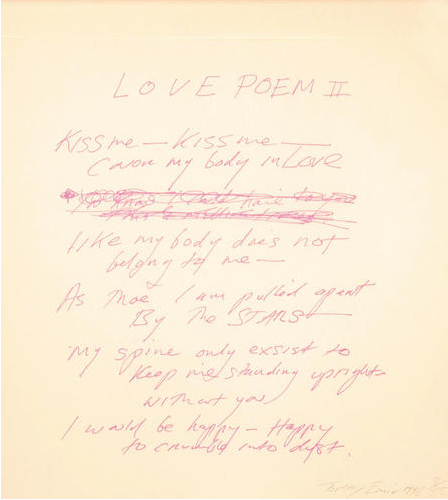 LOVE POEM II
Kiss me — Kiss me —
Cover my body in Love
like my body does not
belong to me —
As Thoe I am pulled apart
By The STARS —
My spine only exsist to
Keep me standing upright
without you
I would be happy — Happy
to crumble into dust.
Tracey Emin